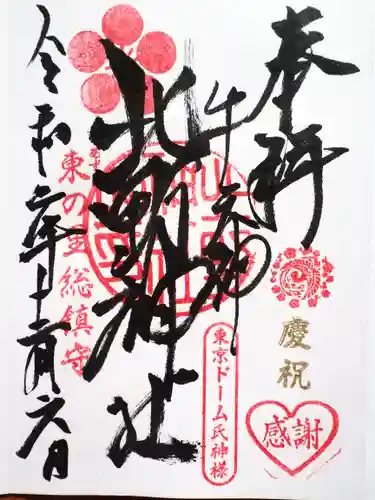 奉拝
慶祝
感謝
牛天神
東京ドーム氏神様
北野神社
東の
総鎮守
令和二年十二月六日